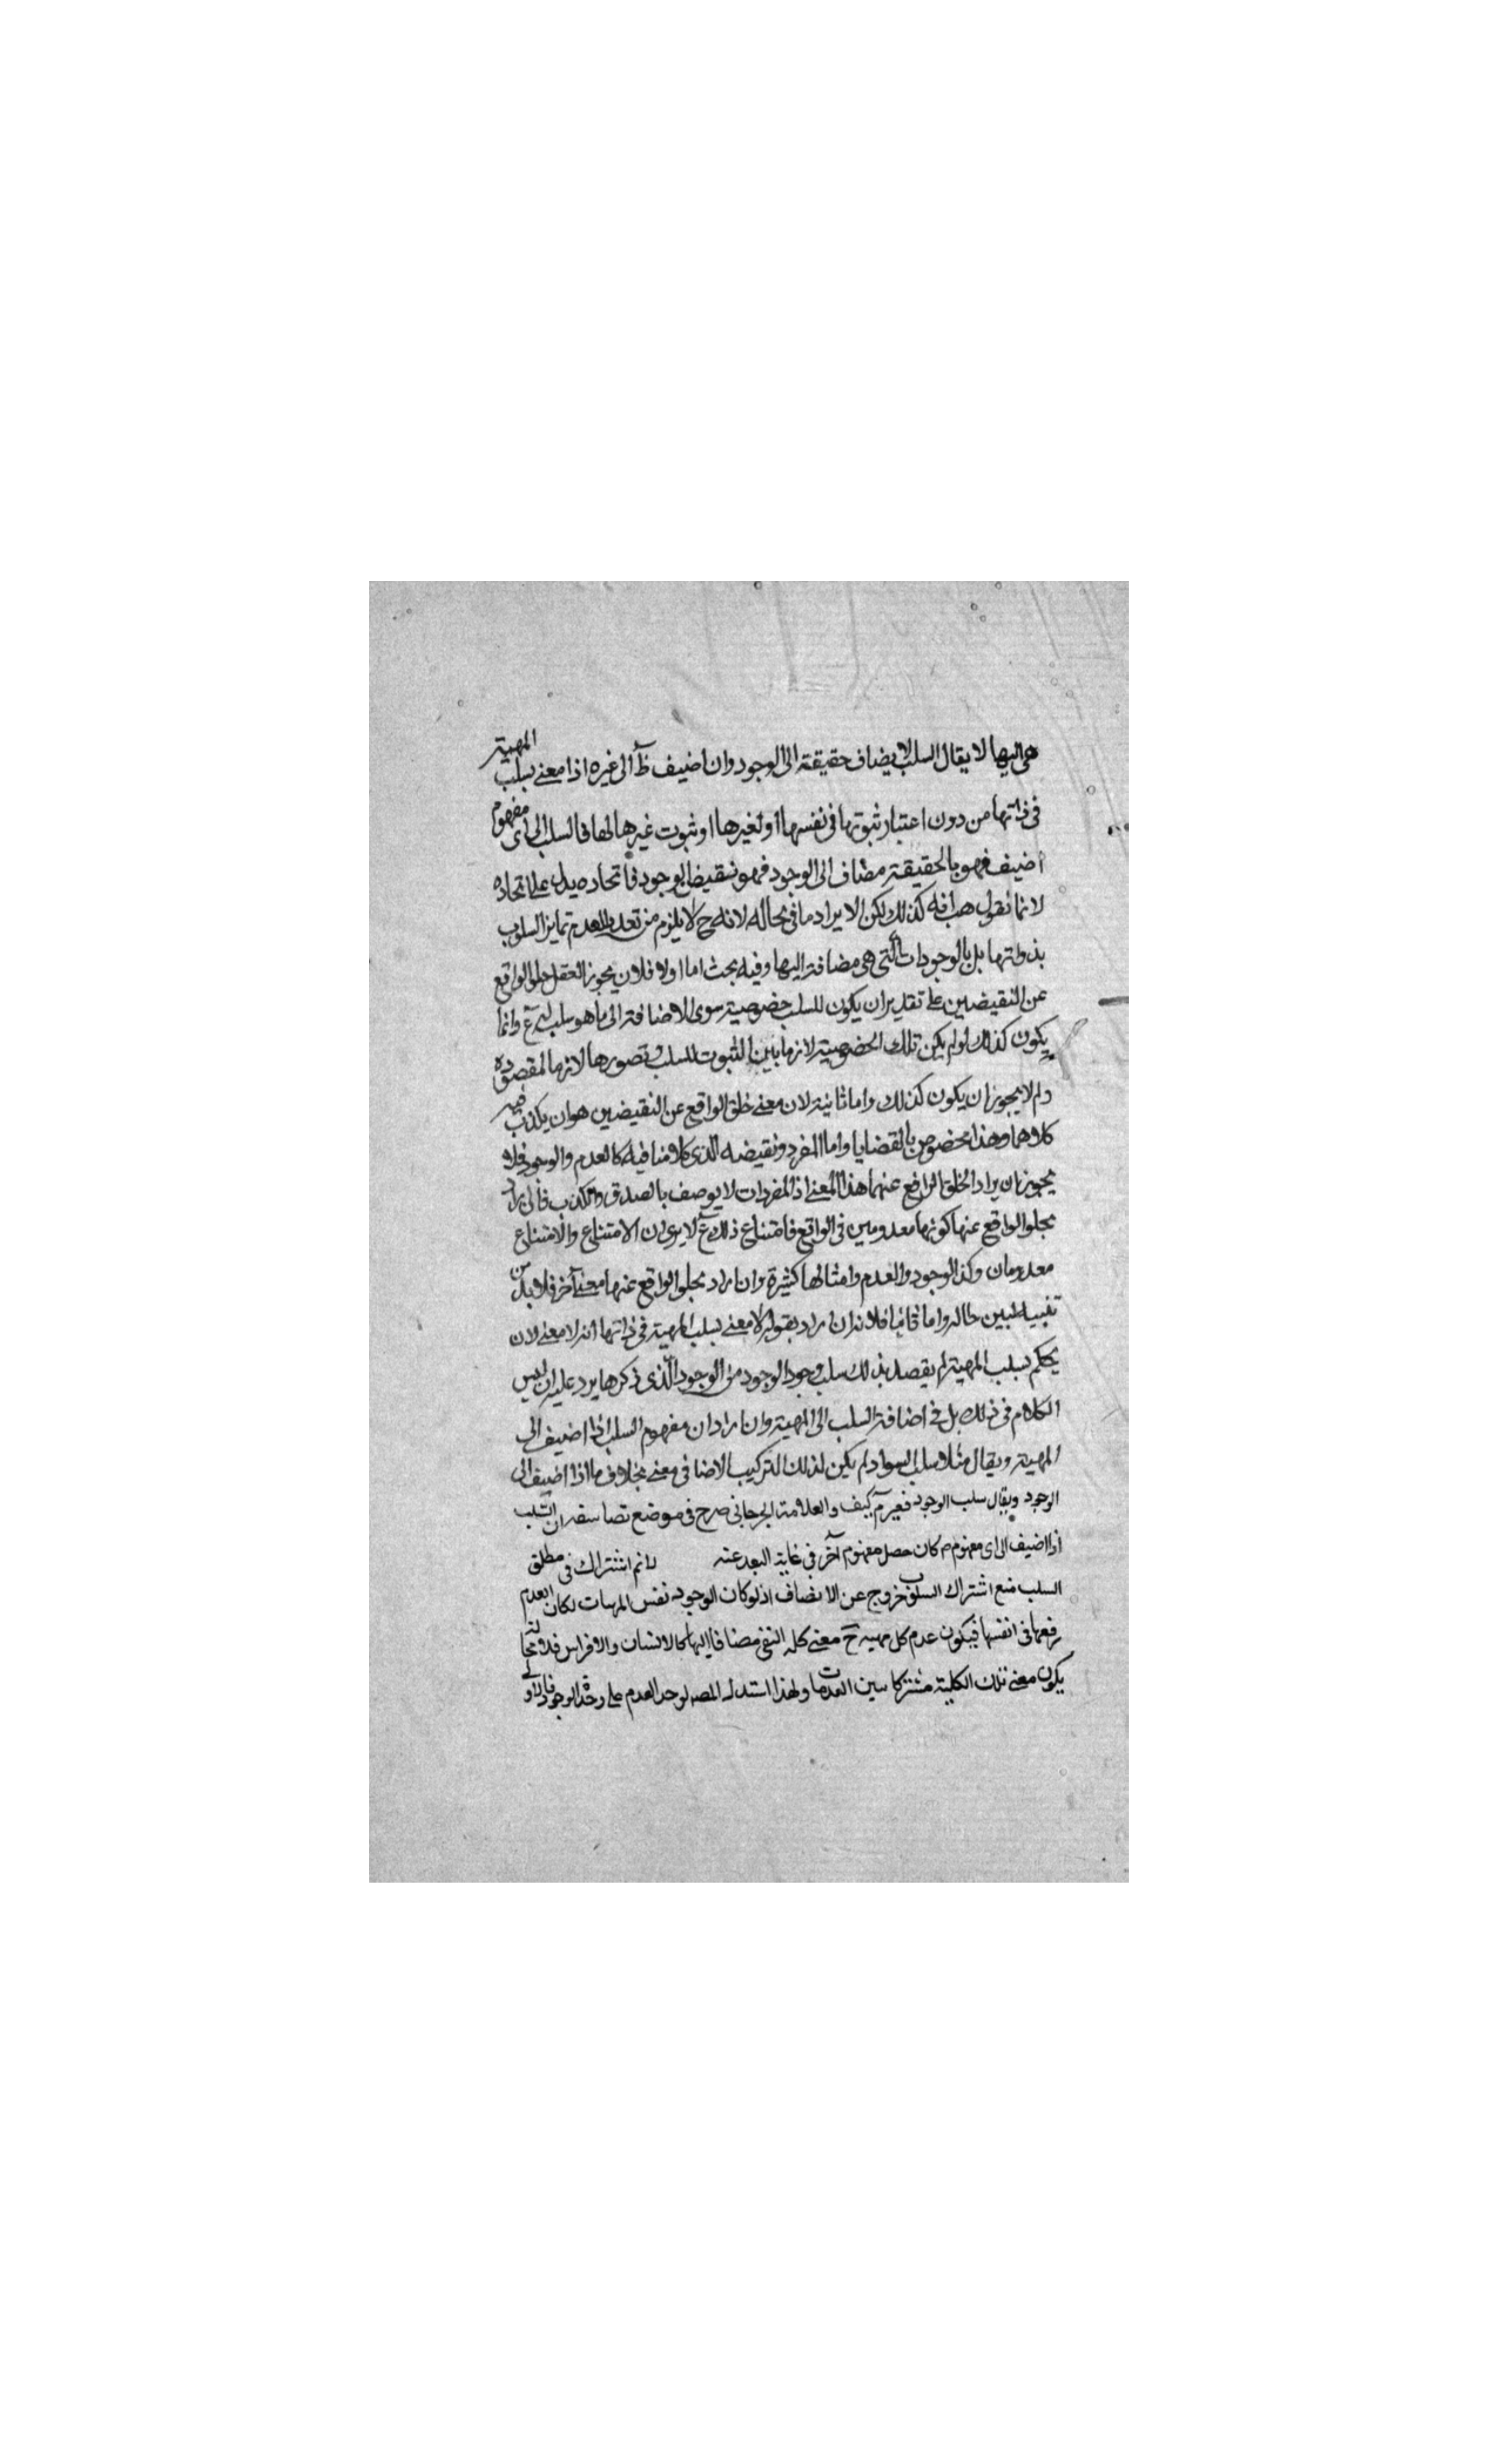 هى اليها لا يقال السلب لا يضاف حقيقة الى الوجود وان اضيف ظآ الى غيره اذا معنے بسلب المهية
فى ذاتها من دون اعتبار ثبوتها فى نفسها او لغيرها او ثبوت غيرها لها فالسلب الى اى مفهوم
اضيف فهو بالحقيقة مضاف الى الوجود فهو نقيض الوجود فاتحاده يدل على اتحاده
لانا نقول هب انه كذلك لكن الايراد ما فى بحاله لانه ح لا يلزم من تعدد العدم تمايز السلوب
بذواتها بل بالوجودات التى هى مضافة اليها وفيه بحث اما اولا فلان يجوز العقل خلو الواقع
عن النقيضين على تقدير ان يكون للسلب خصوصية سوى الاضافة الى ما هو سلب له مع وانما
يكون كذلك لو لم يكن تلك الخصوصية لازما بين الثبوت للسلب وتصورها لازما لمقصوده
ولم لا يجوز ان يكون كذلك واما ثانية لان معنے خلق الواقع عن النقيضين هو ان يكذب فيه
كلاهما وهذا مخصوص بالقضايا واما المفرد ونقيضه الذى كلامنا فيه كالعدم والوجود فلا
يجوز ان يراد الخلق الرافع عنهما هذا المعنے اذ المفردات لا يوصف بالصدق والكذب فالى يراد
بخلو الواقع عنها كونها معدومين فى الواقع فامتناع ذلك مع لا يرى ان الامتناع والامتناع
معدومان وكذا الوجود والعدم وامثالها كثيرة وان اراد بخلو الواقع عنها معنے آخر فلا بد من
تفيي لهبين حاله واما ثالثا فلانه ان اراد بقوله لا معنے لسلب المهية فى ذاتها انه لا معنے لان
يحكم بسلب المهية لم يقصد بذلك سلب وجود الوجود من الوجود الذى ذكرها يرد عليه ان ليس
الكلام فى ذلك بل فى اضافة السلب الى المهية وان اراد ان مفهوم السلب اذا اضيف الى
المهية ويقال مثلا سلب السواد لم يكن لذلك التركيب الاضافى معنے بخلاف ما اذا اضيف الى
الوجود ويقال سلب الوجود فغير مّ كيف والعلامة الجرجانى صرح فى موضع تصانيفه ان السلب
اذا اضيف الى اى مفهوم كان حصل مفهوم آخر فى غاية البعد عنه لانم اشتراك فى مطلق
السلب منع اشتراك السلوب خروج عن الانصاف اذ لو كان الوجود نفس المهيات لكان العدم
رفعها فى انفسها فيكون عدم كل مهية ح معنے كله النفى مضافا اليها كالانسان والافراس فلا محالة
يكون معنے تلك الكلية مشتركا بين العدمات ولهذا استدل المصہ لوحد العدم على وحدة الوجود فالاولى